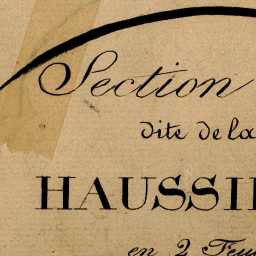 Section
dite de la
HAUSSI
en 2 Feu